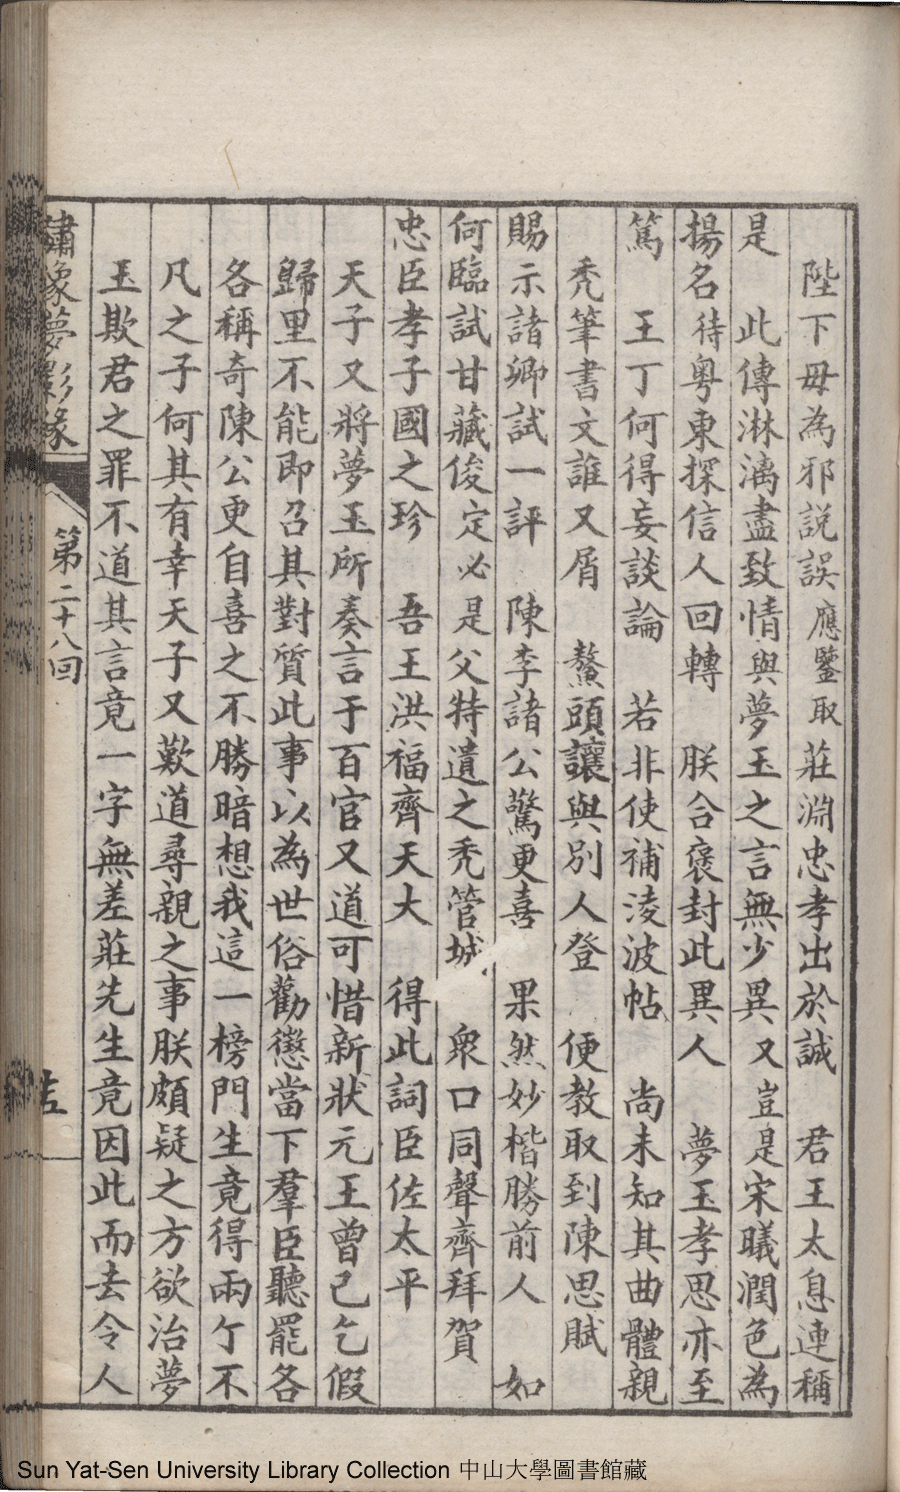 陛下毋為邪説誤應鑒取莊淵忠孝出於誠　君王太息連稱
是　此傳淋漓盡致情與夢玉之言無少異又豈是宋曦潤色為
揚名待粵東探信人回轉　朕合褒封此異人　夢玉孝思亦至
篤　王丁何得妄談論　若非使補淩波帖　尚未知其曲體親
禿筆書文誰又屑　鰲頭讓與別人登　便教取到陳思賦
賜示諸卿試一評　陳李諸公驚更喜　果然妙楷勝前人　如
何臨試甘藏俊　定必是父特遺之禿管城　衆口同聲齊拜賀
忠臣孝子國之珍　吾王洪福齊天大　得此詞臣佐太平
天子又將夢玉所奏言于百官又道可惜新狀元王曾已乞假
歸里不能即召其對質此事以為世俗勸懲當下羣臣聽罷各
各稱奇陳公更自喜之不勝暗想我這一榜門生竟得兩个不
凡之子何其有幸天子又歎道尋親之事朕頗疑之方欲治夢
玉欺君之罪不道其言竟一字無差莊先生竟因此而去令人
繡像夢影緣
第二十八回
Sun Yat-Sen University Library Collection 中山大學圖書館藏